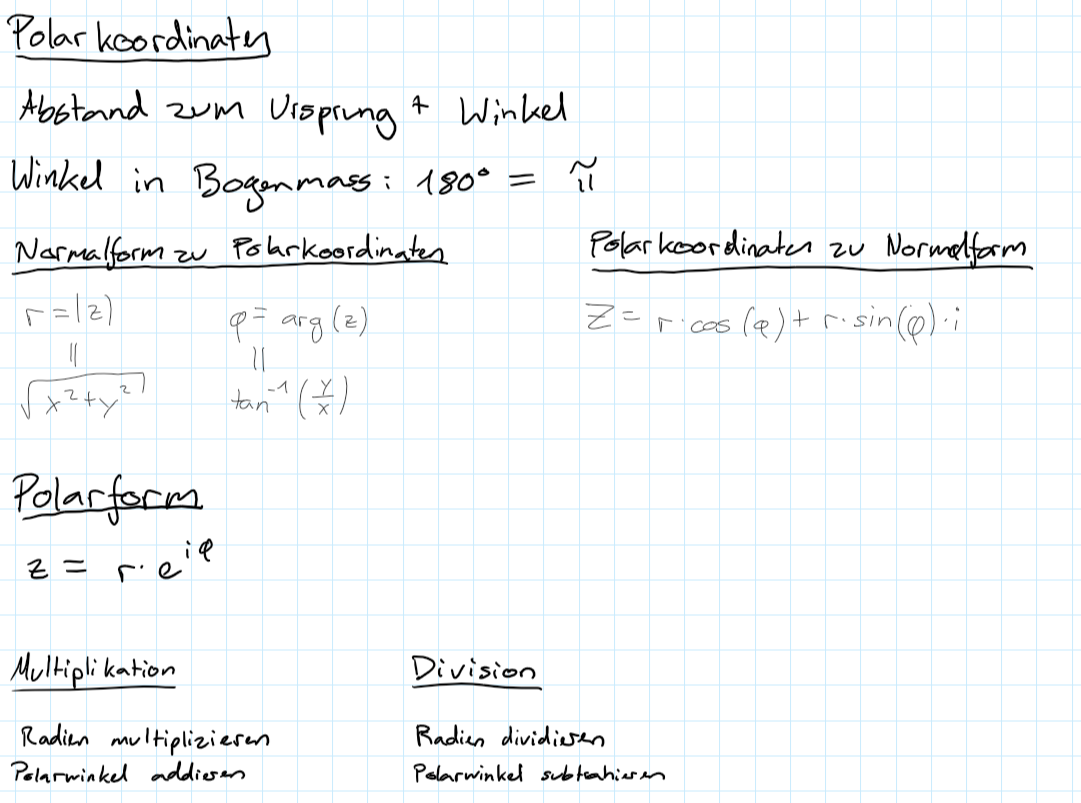 Polarkoordinaten
Abstand zum Ursprung + Winkel
Winkel in Bogenmass: 180° = π
Normalform zu Polarkoordinaten
r = |z|
φ = arg(z)
||
||
√(x²+y²)
tan⁻¹(y/x)
Polarkoordinaten zu Normalform
z = r·cos(φ) + r·sin(φ)·i
Polarform
z = r·e^(iφ)
Multiplikation
Radien multiplizieren
Polarwinkel addieren
Division
Radien dividieren
Polarwinkel subtrahieren